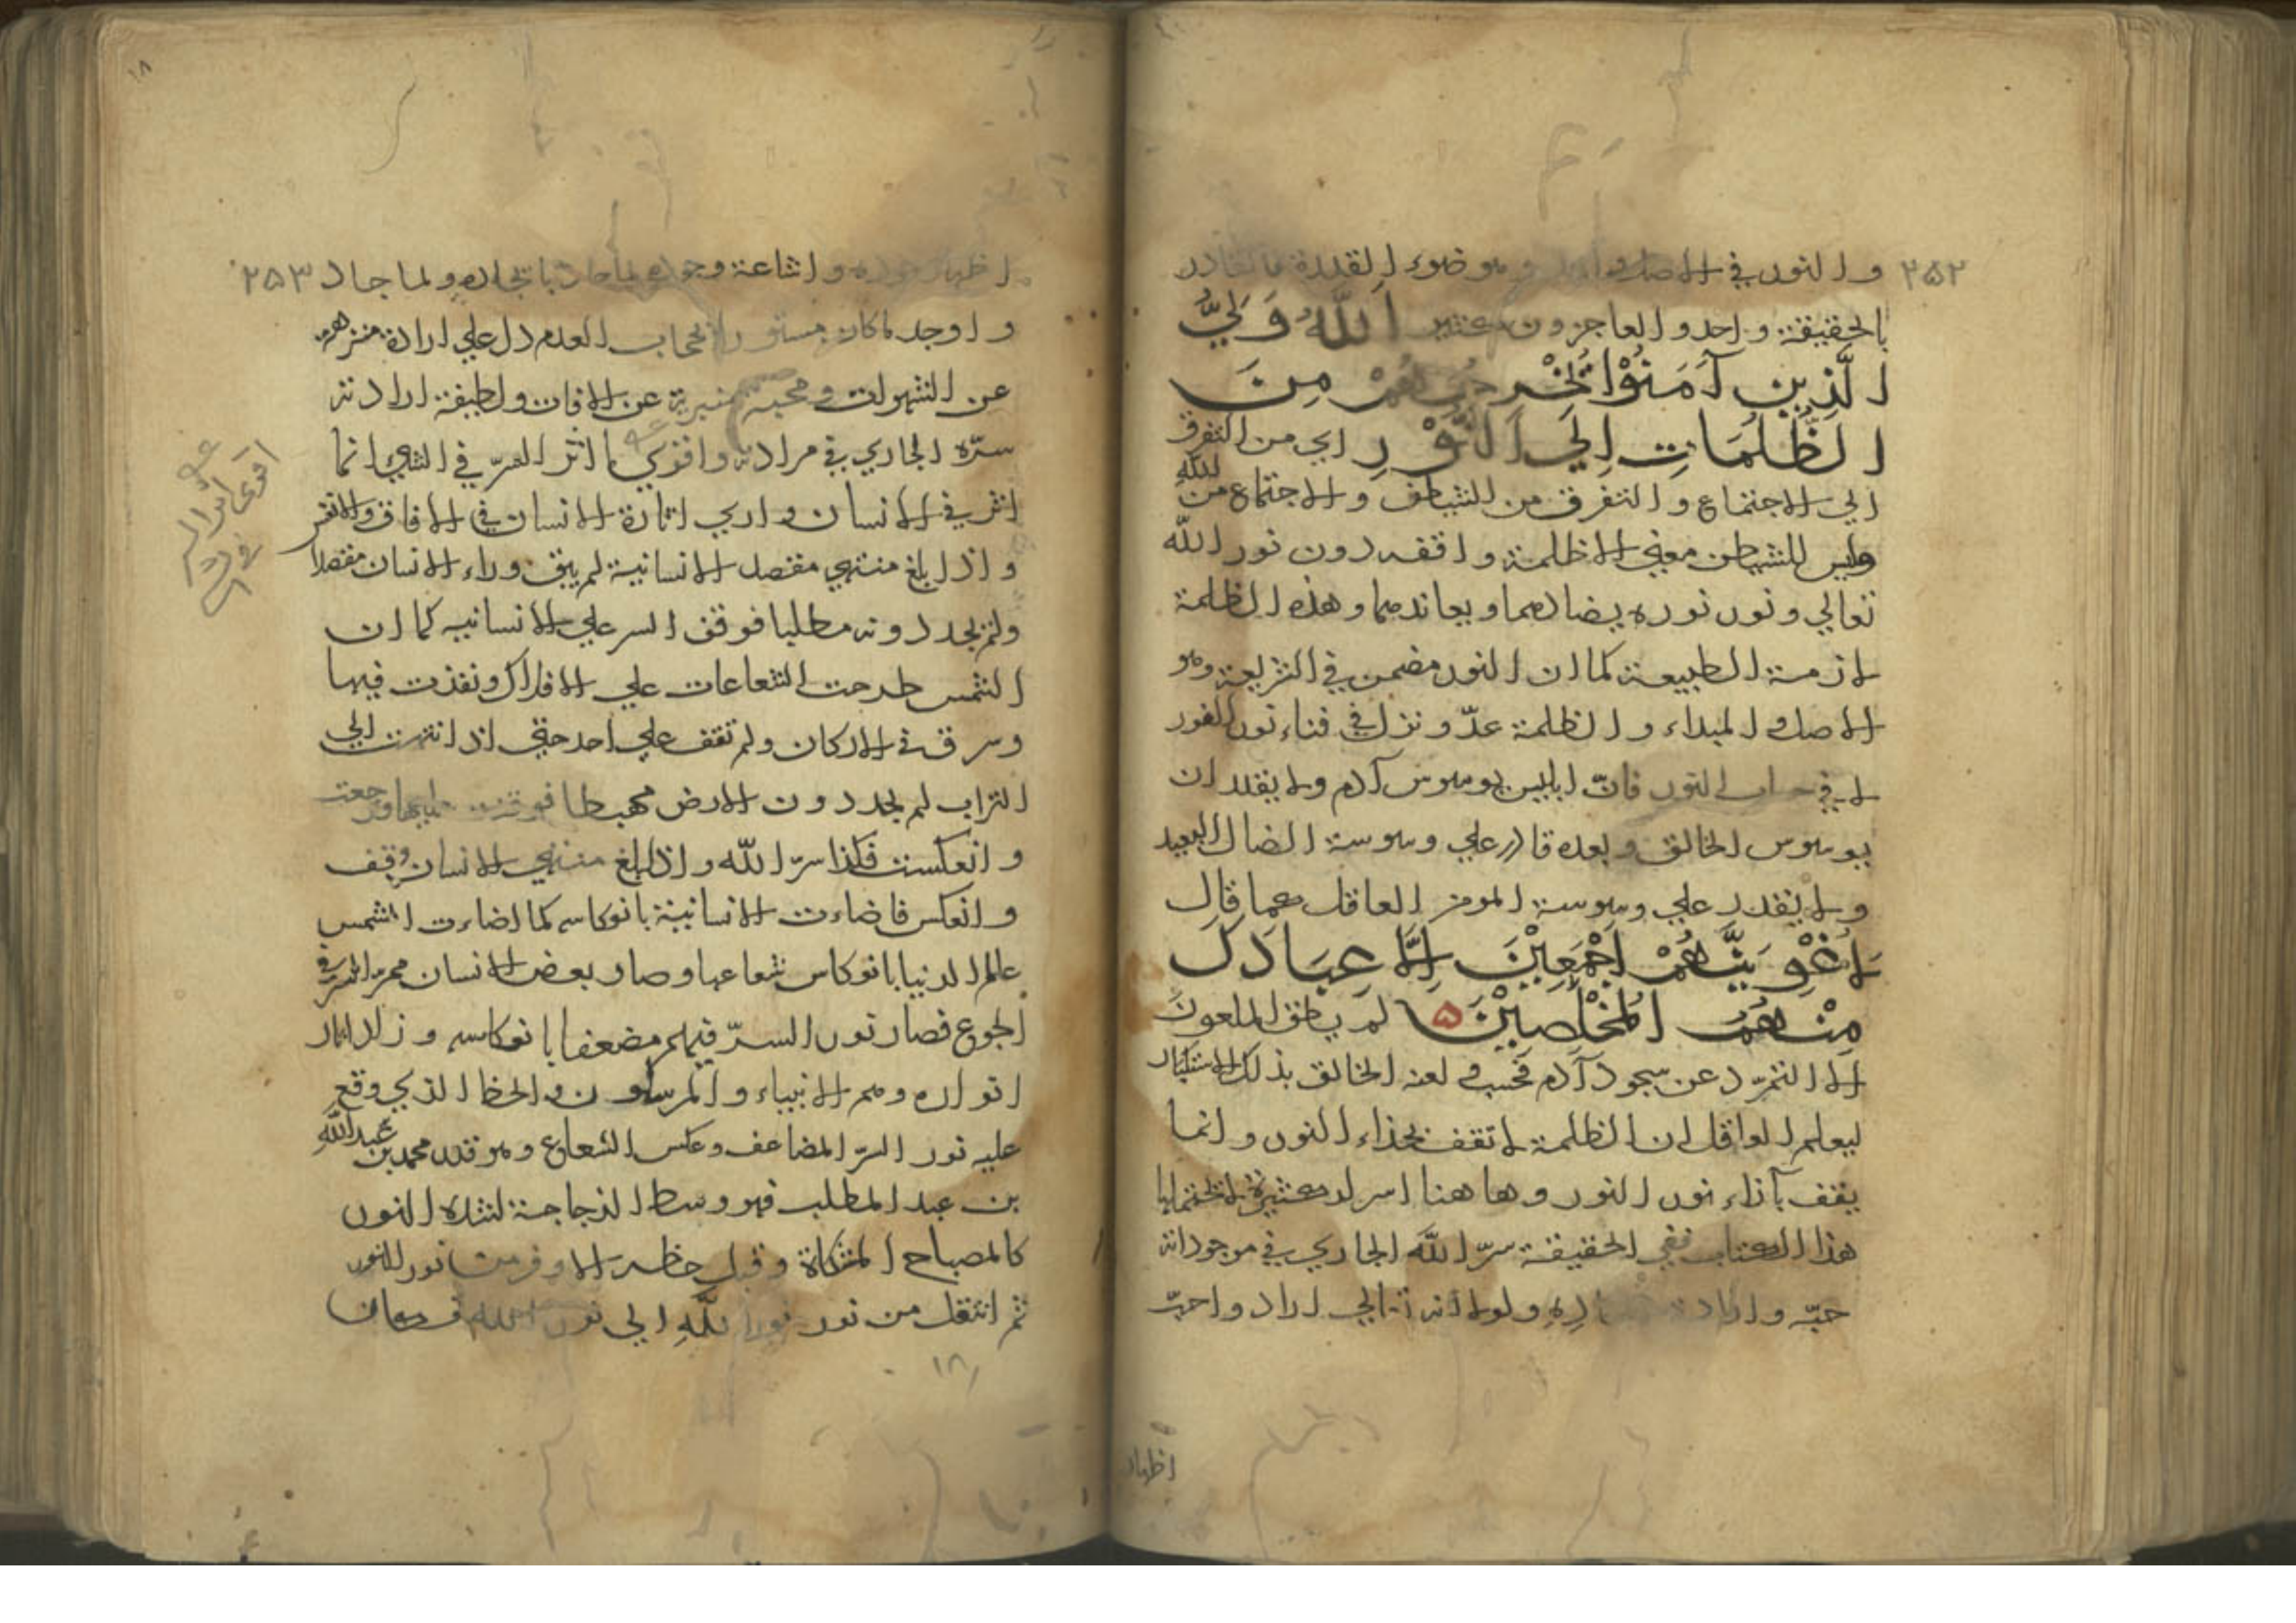 ٢٥٢
والنور في الاصل واحد وهو ضوء القدرة فالقادر
بالحقيقة واحد والعاجزون كثير الله وَلِيُّ
الَّذِينَ آمَنُوْا يُخْرِجُهُمْ مِنَ
الظُّلُمَاتِ اِلَي النُّوْرِ اي من التفرق
الي الاجتماع والتفرق من الشيطان والاجتماع من الله
وليس للشيطان معني الا ظلمة واقفه دون نور الله
تعالي ونور نوره يضادهما ويعاندهما وهذه الظلمة
لازمة الطبيعة كما ان النور مضمن في الشريعة وهو
الاصل والمبداء والظلمة عدّو نزل في فناء نور النور
لا في النور فانّ ابليس يوسوس آدم ولا يقدر ان
يوسوس الخالق وبعده قادر علي وسوسة الضال البعيد
ولا يقدر علي وسوسة المومن العاقل كما قال
لَاُغْوِيَنَّهُمْ اَجْمَعِيْنَ اِلَّا عِبَادَكَ
مِنْهُمُ الْمُخْلَصِيْنَ ۵ لم يطق الملعون
الا التمرّد عن سجود آدم فحسب ولعنه الخالق بذلك الاستكبار
ليعلم العاقل ان الظلمة لا تقف بحذاء النور وانما
يقف بآذاء نور النور وها هنا اسرار كثيرة لا تحتملها
هذا الكتاب ففي الحقيقة سرّ الله الجاري في موجوداته
حبّه وارادته ولولا انه تعالي اراد واحبّ
اظهار
١٨
٢٥٣
اظهار جوده واشاعة وجوده لما جاد بايجاده ولما جاد
واوجد ما كان مستورا في حجاب العدم دل علي ارادة منزهه
عن الشهوات ومحبة متبرية عن الافات ولطيفة ارادته
سرّه الجاري في مراداته واقوي اثر السرّ في الشيء انما
اثر في الانسان واري اثارة الانسان في الافاق والانفس
واذا بلغ منتهي مقصد الانسانية لم يبق وراء الانسان مقصدا
ولم يجد دونه مطلبا فوقف السر علي الانسانيه كما ان
الشمس طرحت الشعاعات علي الافلاك ونفذت فيها
وسرق في الاركان ولم تقف علي احد حتي اذا انتهت الي
التراب لم يجد دون الارض مهبطا فوقفت عليها ورجعت
وانعكست فكذا سرّ الله واذا بلغ منتهي الانسان وقف
وانعكس فاضاءت الانسانية بانوكاسه كما اضاءت الشمس
عالم الدنيا بانوكاس شعاعها وصار بعض الانسان ممرّ السرّ في
الرجوع فصار نور السرّ فيهم مضعفا بانوكاسه وزاد اثار
انواره وهم الانبياء والمرسلون والحظ الذي وقع
عليه نور السرّ المضاعف وعكس الشعاع وهو قلب محمد بن عبد الله
بن عبد المطلب فهو وسط الزجاجة لشدة النور
كالمصباح المشكاة وقبل حظه الاوفر من نور النور
ثم انتقل من نور نور الله الي نور الله فكان
اقوي اثر السر
١٨